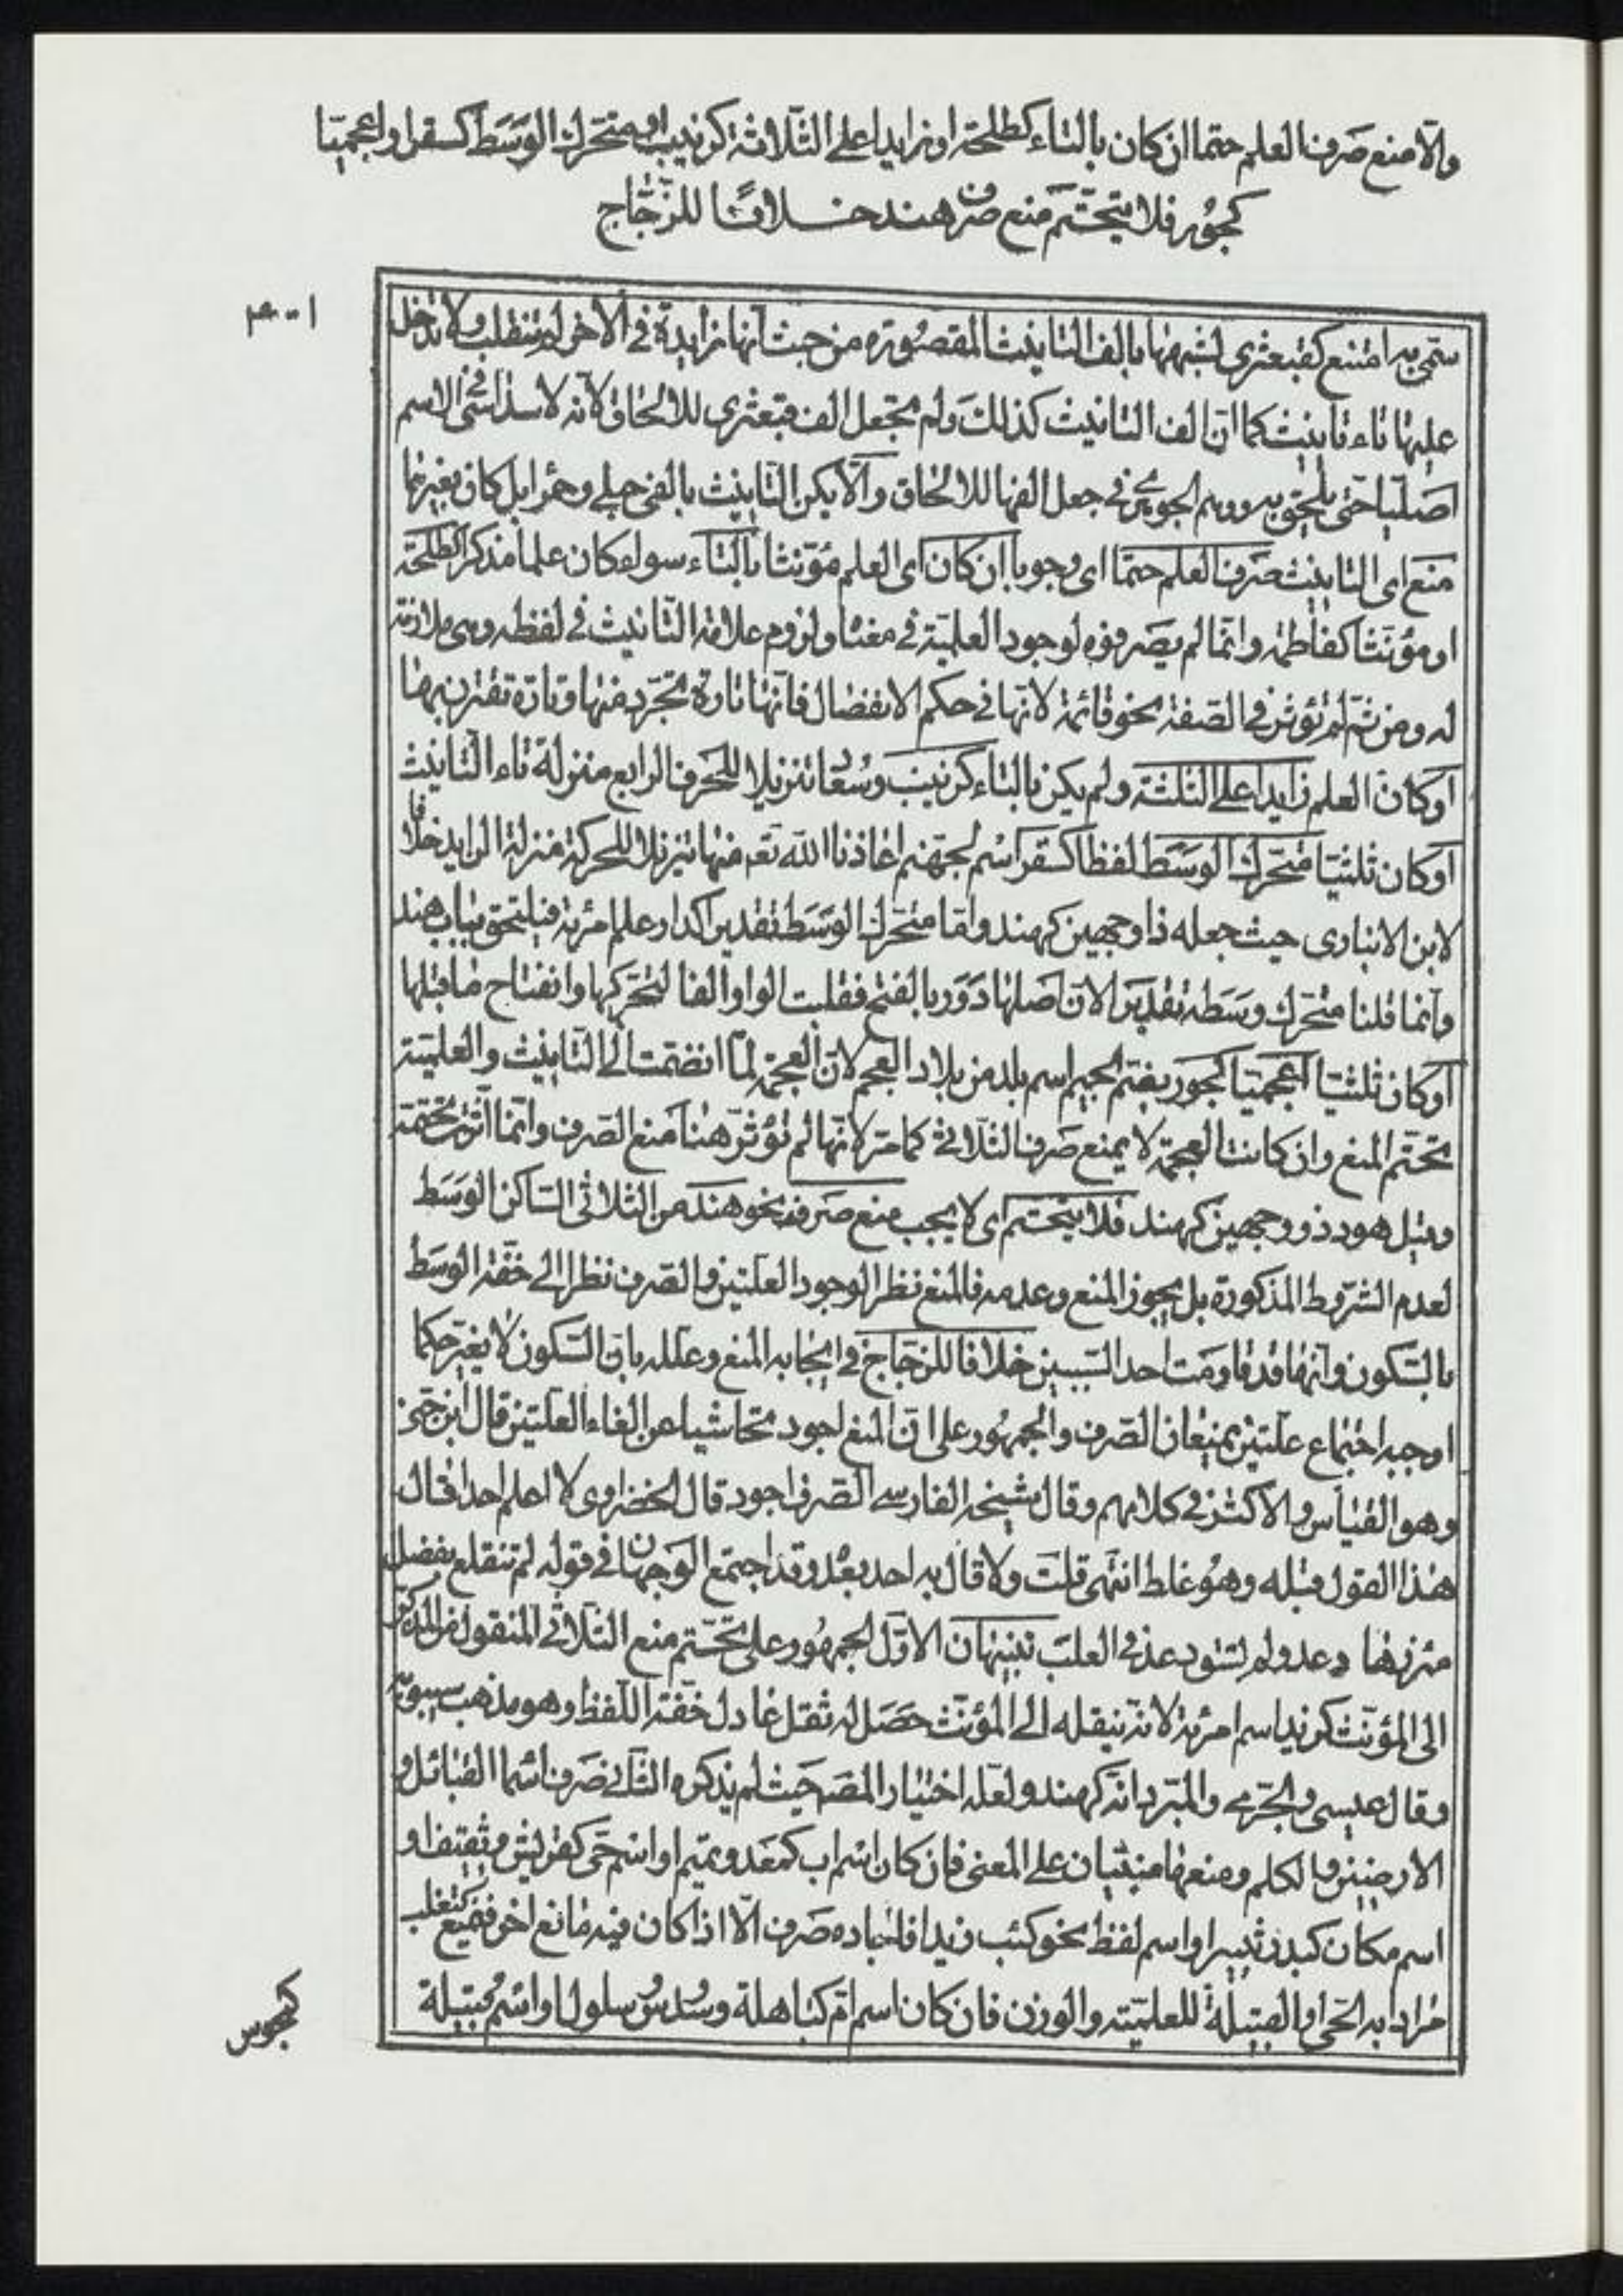 والّا منع صرف العلم حتما ان كان بالتاء كطلحة او زايدا على الثلاثة كزينب او متحرك الوسط كسقر او اعجميّا
كجور فلا يتحتم منع صرف هند خلافًا للزّجاج
سمّى به امتنع كقبعثرى لشبهها بالف التانيث المقصورة من حيث انها زايدة في الاخر لم تنقلب ولا تدخل
عليها تاء تانيث كما ان الف التانيث كذلك ولم تجعل الف قبعثرى للالحاق لانه لا سداسي في الاسم
اصليا حتى يلحق به ووهم الجوهري في جعل الفها للالحاق والّا يكن التانيث بالفي حبلى وحمرا بل كان بغيرهما
منع اى التانيث صرف العلم حتما اى وجوبا ان كان اى العلم مؤنثا بالتاء سواء كان علما مذكر كطلحة
او مؤنثا كفاطمة وانما لم يصرفوه لوجود العلمية في معناه ولزوم علامة التانيث في لفظه وهي ملازمة
له ومن ثم لم تؤثر في الصفة نحو قائمة لانها في حكم الانفصال فانها تارة تجرد منها وتارة تقترن بها
او كان العلم زايدا على الثلثة ولم يكن بالتاء كزينب وسعاد تنزيلا للحرف الرابع منزلة تاء التانيث
او كان ثلثيا متحرك الوسط لفظا كسقر اسم لجهنم اعاذنا الله تع منها تنزيلا للحركة منزلة الزايد خلافا
لابن الانبارى حيث جعله ذا وجهين كهند واما متحرك الوسط تقديرا كدار علم امرأة فيلتحق بباب هند
وانما قلنا متحرك وسطه تقديرا لان اصلها دور بالفتح فقلبت الواو الفا لتحركها وانفتاح ما قبلها
او كان ثلثيا اعجميا كجور بضم الجيم اسم بلد من بلاد العجم لان العجمة لما انضمت الى التانيث والعلمية
تحتم المنع وان كانت العجمة لا يمنع صرف الثلاثي كما مر لانها لم تؤثر هنا منع الصرف وانما اثرت تحتمه
وقيل هو ذو وجهين كهند فلا يتحتم اى لا يجب منع صرف نحو هند من الثلاثي الساكن الوسط
لعدم الشروط المذكورة بل يجوز المنع وعدمه فالمنع نظرا لوجود العلتين والصرف نظرا الى خفة الوسط
بالسكون وانها قد قاومت احد السببين خلافا للزجاج في ايجابه المنع وعلله بان السكون لا يغير حكما
اوجبه اجتماع علتين يمنعان الصرف والجمهور على ان المنع اجود تحاشيا عن الغاء العلتين قال ابن جني
وهو القياس والاكثر في كلامهم وقال شيخه الفارسي الصرف اجود قال الخضراوى لا اعلم احدا قال
هذا القول قبله وهو غلط انتهى قلت ولا قال به احد بعد وقد اجتمع الوجهان في قوله لم تتقلع بفضل
مئزرها دعد ولم تسق دعد في العلب تنبيهان الاول الجمهور على تحتم منع الثلاثي المنقول من المذكر
الى المؤنث كزيد اسم امرأة لانه بنقله الى المؤنث حصل له ثقل عادل خفة اللفظ وهو مذهب سيبويه
وقال عيسى والجرمي والمبرد انه كهند ولعله اختيار المص حيث لم يذكره الثاني صرف اسما القبائل و
الارضين والكلم ومنعها مبنيان على المعنى فان كان اسم اب كمعد وتميم او اسم حي كقريش وثقيف او
اسم مكان كبدر وثبير او اسم لفظ نحو كتب زيد افاجاده صرف الّا اذا كان فيه مانع اخر فيمنع كتغلب
مرادا به الحي او القبيلة للعلمية والوزن فان كان اسم ام كباهلة وسدوس سلول او اسم قبيلة
كمجوس